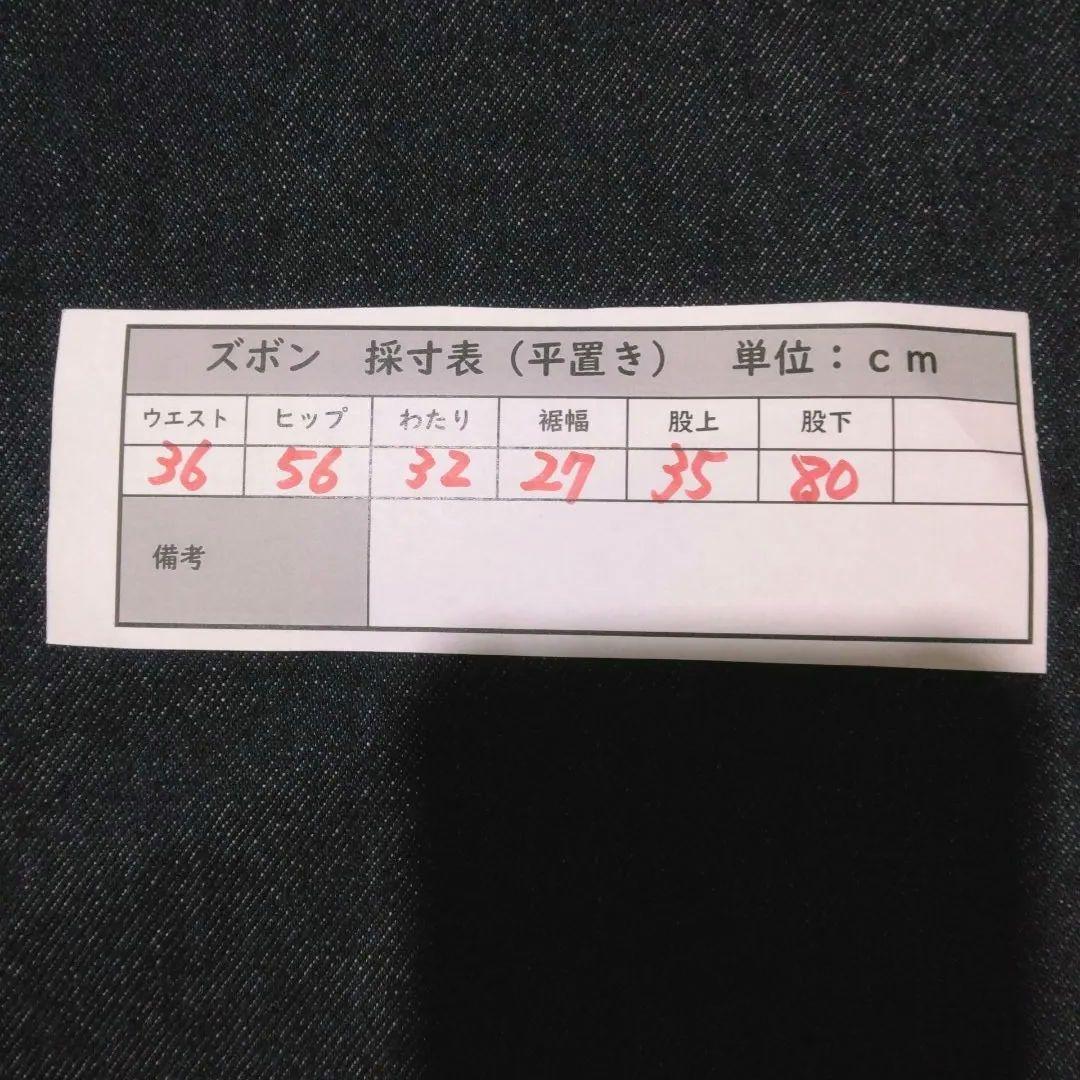 ズボン　採寸表（平置き）　単位：ｃｍ
ウエスト ヒップ わたり 裾幅 股上 股下
36 56 32 27 35 80
備考